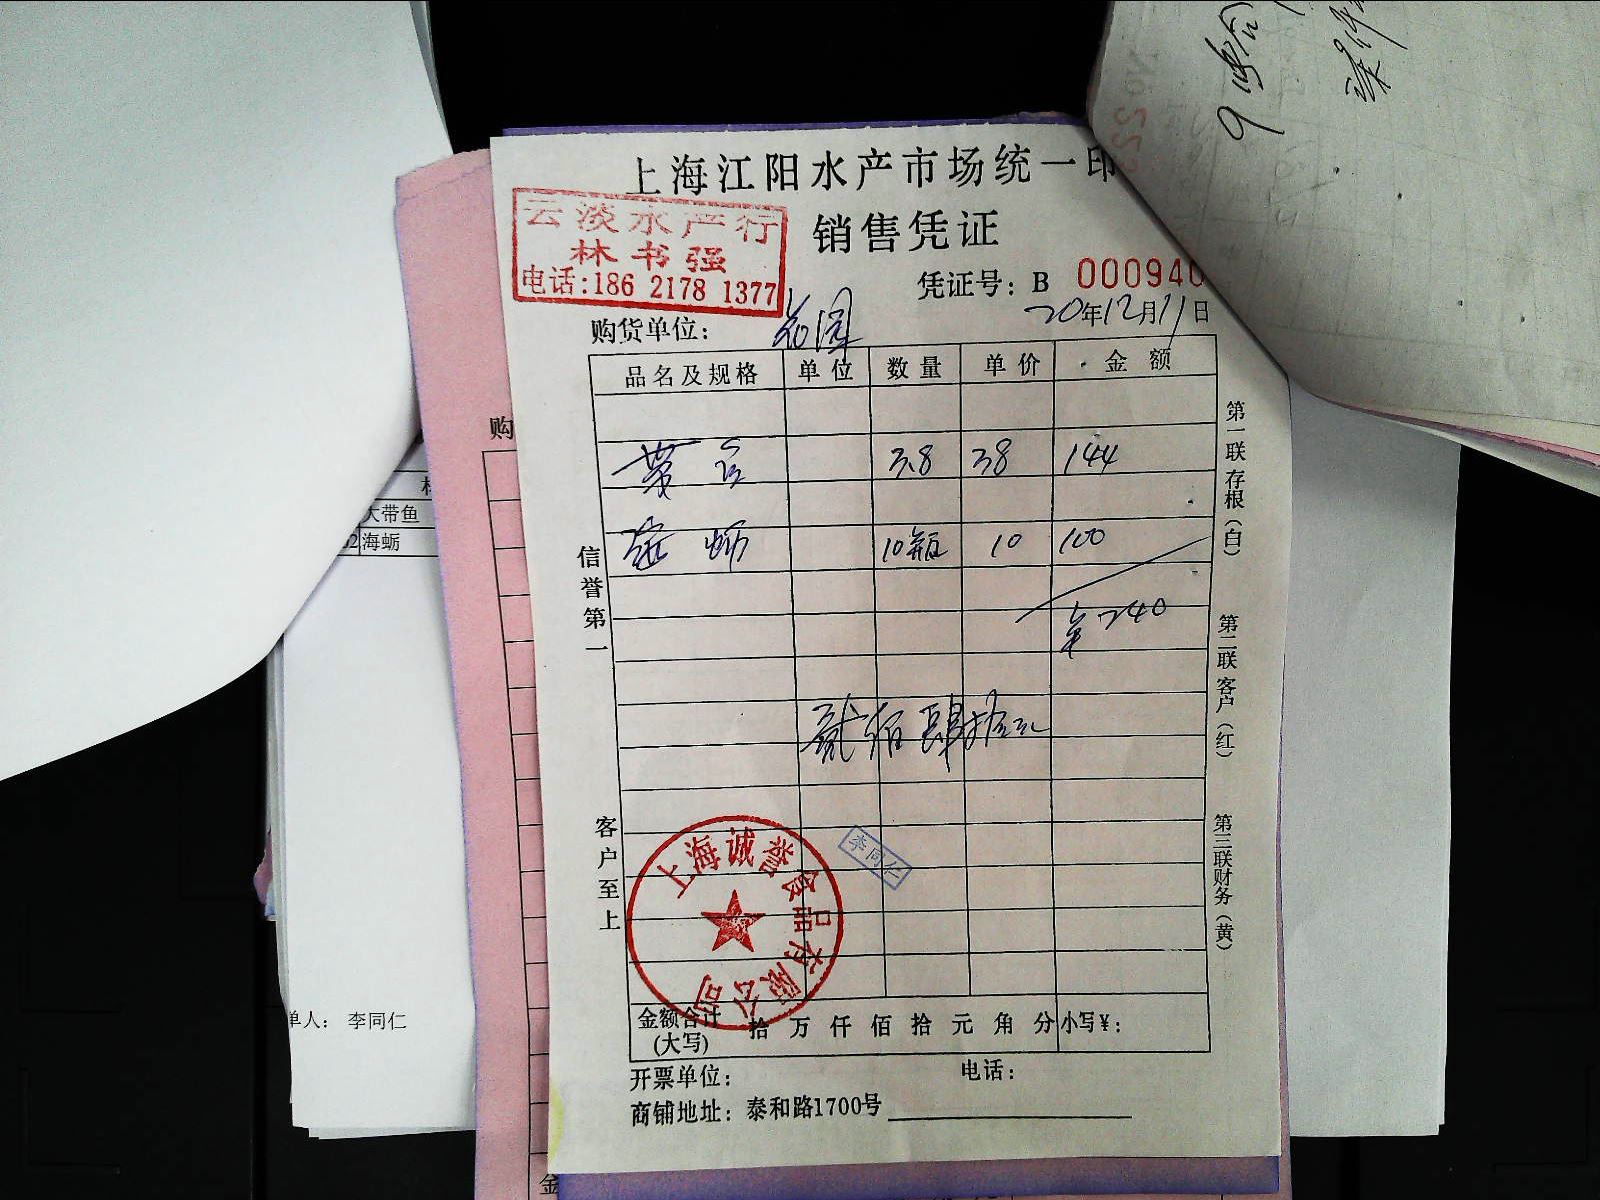 上海江阳水产市场统一印
销售凭证
云淡水产行
林书强
电话:186 2178 1377
凭证号: B 000940
20年12月11日
购货单位:
品名及规格 单位 数量 单价 金额
3.8 38 144
海蛎 10瓶 10 100
240
贰佰肆拾元
信誉第一
客户至上
第一联存根(白)
第二联客户(红)
第三联财务(黄)
李同仁
上海诚誉食品有限公司
金额合计(大写) 拾 万 仟 佰 拾 元 角 分 小写¥:
开票单位: 电话:
商铺地址: 泰和路1700号
购
大带鱼
02 海蛎
单人: 李同仁
金